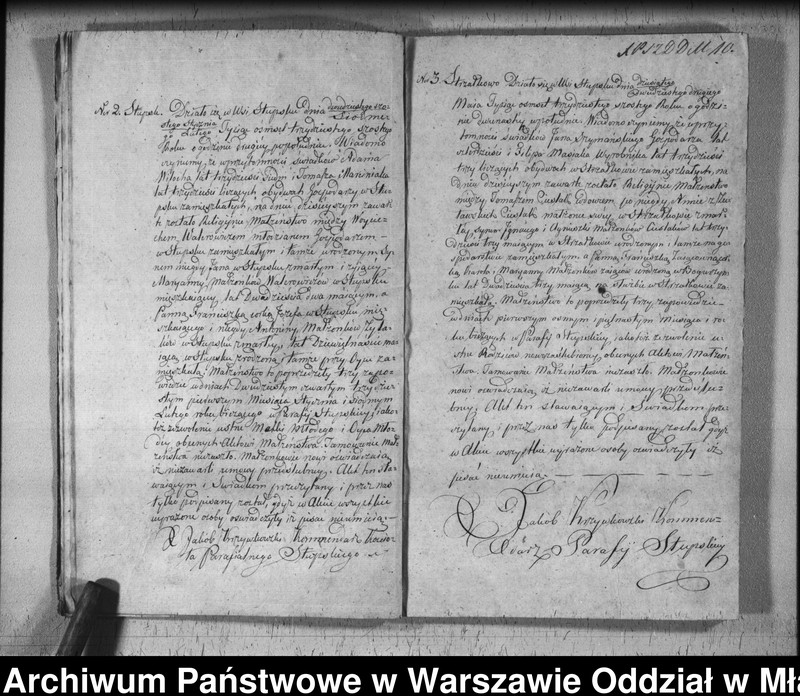 No 2. Słupsk. Działo się w Wsi Słupsku dnia dwudziestego szo-
stego Stycznia Siódmego
Lutego Tysiąc osmset trzydziestego szostego
Roku o godzinie drugiey popołudniu. Wiadomo
czyniemy, iż w przytomności świadków Adama
lat trzydzieści siedm i Tomasza
lat trzydzieści liczących obydwoch Gospodarzy w Słu-
psku zamieszkałych, na dniu dzisieyszym zawar-
te zostało Religiyne Małżeństwo między Woycie-
chem Walerowiczem młodzianem Gospodarzem
w Słupsku zamieszkałym i tamże urodzonym Sy-
nem niegdy Jana w Słupsku zmarłego i żyiącey
Maryanny, Małżonków Walerowiczów w Słupsku
mieszkaiącey, lat Dwadzieścia dwa maiącym, a
Panną Franciszką córką Józefa w Słupsku, mie-
szkaiącego i niegdy Antoniny Małżonków
w Słupsku zmarłey, lat Dziewiętnaście ma-
iącą, w Słupsku zrodzoną i tamże przy Oycu za-
mieszkałą. Małżeństwo to poprzedziły trzy zapo-
wiedzie w dniach Dwudziestym czwartym trzydzie-
stym pierwszym Miesiąca Stycznia i siódmym
Lutego roku bieżącego w Parafij Słupskiey, iako-
też zezwolenie ustne Matki Młodego i Oyca Mło-
dey obecnych Aktowi Małżeństwa. Tamowanie Mał-
żeństwa niezaszło. Małżonkowie nowi oświadczaią
iż niezawarli umowy przedślubney. Akt ten sta-
waiącym i Świadkom przeczytany i przez nas
tylko podpisany został, gdyż w Akcie wszystkie
wyrażone osoby oświadczyły iż pisać nieumieią.
X Jakób Krzywkowski Kommendarz Kościo-
ła Parafialnego Słupskiego
10.
No 3. Strzałkowo Działo się w Wsi Słupsku dnia dziesiątego
Dwudziestego drugiego
Maia Tysiąc osmset trzydziestego szostego Roku o godzi-
nie dwunastey w południe. Wiadomo czyniemy, iż w przy-
tomności świadków Jana Szymańskiego Gospodarza lat
czterdzieści i Filipa Masiaka Wyrobnika lat trzydzieści
trzy liczących obydwoch w Strzałkowie zamieszkałych, na
dniu dzisieyszym zawarte zostało Religiyne Małżeństwo
między Tomaszem Cieślak Wdowcem po niegdy Annie z
Cieślak małżonce swey w Strzałkowie zmar-
łey, synem Ignacego i Agnieszki Małżonków Cieślaków lat trzy-
dzieści trzy maiącym w Strzałkowie urodzonym i tamże na go-
spodarstwie zamieszkałym a Panną Franciszką
ką Karola i Maryanny Małżonków
lat Dwadzieścia trzy maiącą na służbie w Strzałkowie za-
mieszkałą. Małżeństwo to poprzedziły trzy zapowiedzie
w dniach pierwszym osmym i piętnastym Miesiąca i ro-
ku bieżących w Parafij Słupskiey, iakoteż zezwolenie u-
stne Rodziców nowozaślubioney, obecnych Aktowi Małżeń-
stwa. Tamowanie Małżeństwa niezaszło. Małżonkowie
nowi oświadczaią iż niezawarli umowy przedślu-
bney. Akt ten stawaiącym i Świadkom prze-
czytany i przez nas tylko podpisany został gdyż
w Akcie wszystkie wyrażone osoby oświadczyły iż
pisać nieumieią.
X Jakób Krzywkowski Kommen-
darz Parafij Słupskiey
Archiwum Państwowe w Warszawie Oddział w Mła